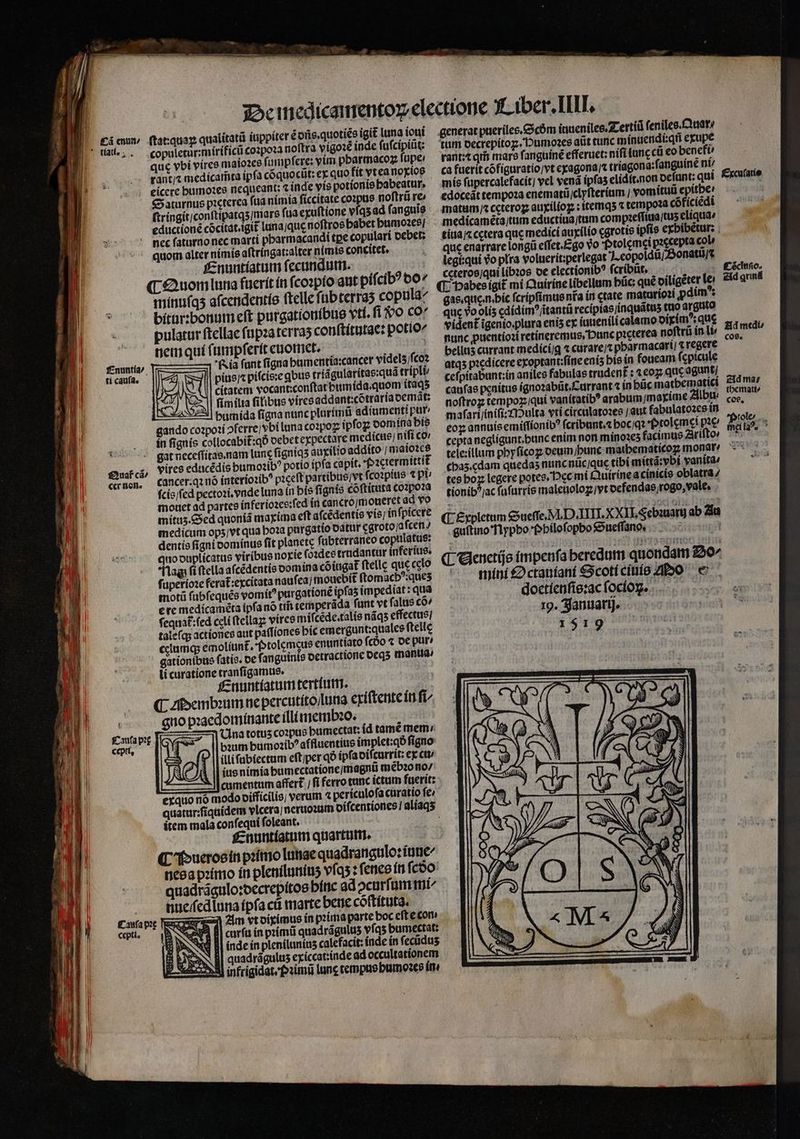 De medicamentoꝝ electione Liber.IIII.
Cā enun/
tiati.
ſtat:quaꝝ qualitatū iuppiter ē dn̄s.quotiēs igiť luna ioui
copuletur:mirificū coꝛpoꝛa noſtra vigoꝛē inde ſuſcipiūt:
quę vbi vires maioꝛes ſumpſere: vim pharmacoꝝ ſupe/
rant/⁊ medicamīa ipſa cōquocūt: ex quo fit vt ea noxios
eicere humoꝛes nequeant: ⁊ inde vis potionis habeatur.
Saturnus pꝛęterea ſua nimia ſiccitate coꝛpus noſtrū re/
ſtringit/conſtipatqꝫ/mars ſua exuſtione vſqꝫ ad ſanguīs
eductionē cōcitat.igiť luna/quę noſtros habet humoꝛes/
nec ſaturno nec marti pharmacandi tp̄e copulari debet:
quom alter nimis aſtringat:alter nimis concitet.
Enuntiatum ſecundum.
❡ Quom luna fuerit in ſcoꝛpio aut piſcibꝰ do/
minuſqꝫ aſcendentis ſtelle ſub terras copula/
bitur:bonum eſt purgationibus vti. ſi vo co/
pulatur ſtellae ſupꝛa terras conſtitutae: potio/
nem qui ſumpſerit euomet.
Enuntia/
ti cauſa.
TRia ſunt ſigna humentia:cancer videlꝫ/ſcoꝛ
pius/⁊ piſcis:e qbus triāgularitas:quā tripli/
citatem vocant:conſtat humida.quom itaqꝫ
ſimilia ſilibus vires addant:cōtraria demāt:
humida ſigna nunc plurimū adiumenti pur/
gando coꝛpoꝛi ꝯferre/vbi luna coꝛpoꝝ ipſoꝝ domina his
in ſignis collocabiť:qd̄ debet expectare medicus/ niſi co/
gat neceſſitas.nam lunę ſigniqꝫ auxilio addito / maioꝛes
Quař cā/
cer non.
vires educēdis humoꝛibꝰ potio ipſa capit. Pꝛętermittiť
cancer.qꝛ nō interioꝛibꝰ pꝛęeſt partibus/vt ſcoꝛpius ⁊ pi/
ſcis/ſed pectoꝛi.vnde luna in his ſignis cōſtituta coꝛpoꝛa
mouet ad partes inferioꝛes:ſed in cancro/moueret ad vo
mitus.Sed quoniā maxima eſt aſcēdentis vis/ inſpicere
medicum opꝫ/vt qua hoꝛa purgatio datur ęgroto/aſcen/
dentis ſigni dominus ſit planetę ſubterraneo copulatus:
quo duplicatus viribus noxię ſoꝛdes trudantur inferius.
Nam ſi ſtella aſcēdentis domina cōiungať ſtellę quę cęlo
ſuperioꝛe feraťː excitata nauſea/ mouebiť ſtomachꝰ:queꝫ
motū ſubſequēs vomitꝰ purgationē ipſaꝫ impediat: qua
ere medicamēta ipſa nō tm̄ temperāda ſunt vt ſalus cō/
ſequať:ſed cęli ſtellaꝝ vires miſcēdę.talis nāqꝫ effectus/
taleſqꝫ actiones aut paſſiones hic emergunt:quales ſtellę
cęlumqꝫ emoliunť. Ptolęmęus enuntiato ſcdo ⁊ de pur/
gationibus ſatis. de ſanguinis detractione deqꝫ manua/
li curatione tranſigamus.
Enuntiatum tertium.
❡ Membꝛum ne percutito/luna exiſtente in ſi/
gno pꝛaedominante illi membꝛo.
Cauſa pꝛę
cepti.
LUna totus coꝛpus humectat: id tamē mem/
bꝛum humoꝛibꝰ affluentius implet:qd̄ ſigno
illi ſubiectum eſt/per qd̄ ipſa diſcurrit: ex cu/
ius nimia humectatione/magnū mēbꝛo no/
cumentum afferť / ſi ferro tunc ictum fuerit:
exquo nō modo difficilis/ verum ⁊ periculoſa curatio ſe/
quatur:ſiquidem vlcera/ neruoꝛum diſcentiones / aliaqꝫ
item mala conſequi ſoleant.
Enuntiatum quartum.
❡ Pueros in pꝛimo lunae quadrangulo: iuue/
nes a pꝛimo in pleniluniuꝫ vſqꝫ : ſenes in ſcdo
quadrāgulo:decrepitos hinc ad ꝯcurſum mi/
nue/ſed luna ipſa cū marte bene cōſtituta.
Cauſa pꝛę
cepti.
IAm vt diximus in pꝛima parte hoc eſt e con/
curſu in pꝛimū quadrāgulus vſqꝫ humectat:
inde in pleniluniuꝫ calefacit: inde in ſecūduꝫ
quadrāguluꝫ exiccat:inde ad occultationem
infrigidat. Pꝛimū lunę tempus humoꝛes in/
generat pueriles. Scd̄m iuueniles. Tertiū ſeniles. Quar/
tum decrepitoꝝ. Humoꝛes aūt tunc minuendi:qn̄ exupe
rant:⁊ qm̄ mars ſanguinē efferuet: niſi lunę cū eo benefi/
ca fuerit cōfiguratio/vt exagona/⁊ triagona:ſanguinē ni/
mis ſupercalefacit/ vel venā ipſaꝫ elidit.non deſunt: qui
Excuſatio
edoceāt tempoꝛa enematū/clyſterium / vomituū epithe/
matum/⁊ cęteroꝝ auxilioꝝ : itemqꝫ ⁊ tempoꝛa cōficiēdi
medicamēta/tum eductiua/tum compreſſiua/tuꝫ eliqua/
tiua/⁊ cętera quę medici auxilio ęgrotis ipſis exhibētur:
quę enarrare longū eſſet.Ego vo Ptolęmęi pꝛęcepta col/
legi:qui vo plꝛa voluerit:perlegat Leopoldū/Bonatū/⁊
cęteros/qui libꝛos de electionibꝰ ſcribūt.
Cōcluſio.
❡ Habes igiť mi Quirine libellum hūc: quē diligēter le/
Ad qrinū
gas.quę.n.hic ſcripſimus nr̄a in ętate maturioꝛi ꝓdimꝰ:
quę vo olis ędidimꝰ/itantū recipias/inquātuꝫ tuo arguto
videnť īgenio.plura enīꝫ ex iuuenili calamo diximꝰ: quę
nunc pꝛuentioꝛi retineremus. Hunc pꝛęterea noſtrū in li/
Ad medi/
cos.
bellus currant medici/q ⁊ curare/⁊ pharmacari/ ⁊ regere
atqꝫ pꝛędicere exoptant:ſine eniꝫ his in foueam ſępicule
ceſpitabunt:in aniles fabulas trudenť : ⁊ eoꝝ quę agunt/
cauſas penitus ignoꝛabūt.Currant ⁊ in hūc mathematici
Ad ma/
themati/
cos.
noſtroꝝ tempoꝝ/qui vanitatibꝰ arabum/maxime Albu/
maſari/inſiſti:Multa vti circulatoꝛes / aut fabulatoꝛes in
eoꝝ annuis emiſſionibꝰ ſcribunt.⁊ hoc/qꝛ Ptolęmęi pꝛę/
Ptole/
męi laꝰ.
cepta negligunt.hunc enim non minoꝛeꝫ facimus Ariſto/
tele:illum phyſicoꝝ deum/hunc mathematicoꝝ monar/
chaꝫ.ędam quedaꝫ nunc nūc/quę tibi mittā:vbi vanita/
tes hoꝝ legere potes. Hęc mi Quirine a cinicis oblatra/
tionibꝰ/ac ſuſurris maleuoloꝝ/vt defendas/rogo/vale.
❡ Expletum Sueſſe.M.D.IIII.XXII.Febꝛuarij ab Au
guſtino Nypho Philoſopho Sueſſano.
❡ Venetijs impenſa heredum quondam Do/
mini Octauiani Scoti ciuis Mo    e
doetienſis:ac ſocioꝝ.
19. Januarij.
1519
O S
M